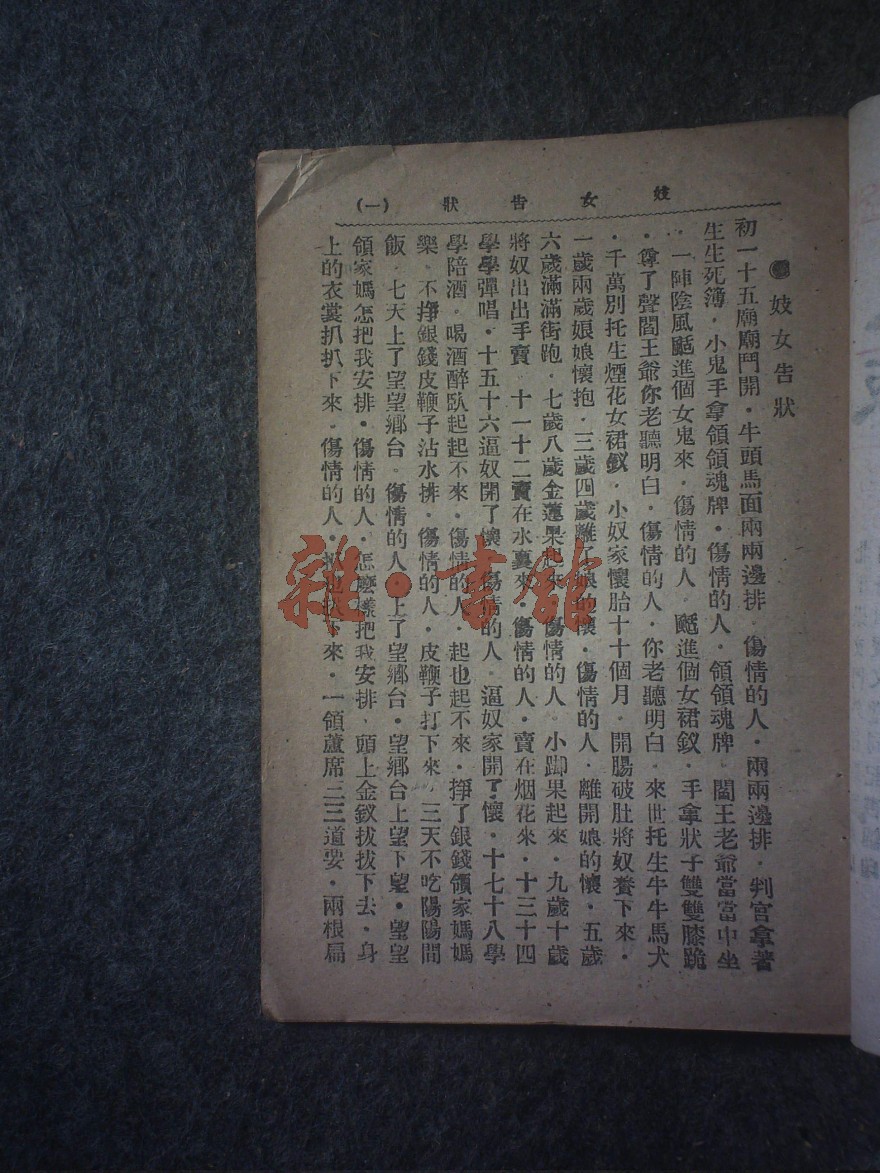 妓女告狀 (一)
妓女告狀
初一十五廟廟門開・牛頭馬面兩兩邊排・傷情的人・兩兩邊排・判官拿著
生生死簿・小鬼手拿領領魂牌・傷情的人・領領魂牌・閻王老爺當當中坐
・一陣陰風颳進個女鬼來・傷情的人・颳進個女裙釵・手拿狀子雙雙膝跪
・尊了聲閻王爺你老聽明白・傷情的人・你老聽明白・來世托生牛牛馬犬
・千萬別托生煙花女裙釵・小奴家懷胎十十個月・開腸破肚將奴養下來・
一歲兩歲娘娘懷抱・三歲四歲離了娘的懷・傷情的人・離開娘的懷・五歲
六歲滿滿街跑・七歲八歲金蓮果起來・傷情的人・小脚果起來・九歲十歲
將奴出出手賣・十一十二賣在水裏來・傷情的人・賣在烟花來・十三十四
學學彈唱・十五十六逼奴開了懷・傷情的人・逼奴家開了懷・十七十八學
學陪酒・喝酒醉臥起起不來・傷情的人・起也起不來・掙了銀錢領家媽媽
樂・不掙銀錢皮鞭子沾水排・傷情的人・皮鞭子打下來・三天不吃陽陽間
飯・七天上了望望鄉台・傷情的人・上了望鄉台・望鄉台上望下望・望望
領家媽怎把我安排・傷情的人・怎麽樣把我安排・頭上金釵拔拔下去・身
上的衣裳扒扒下來・傷情的人・扒下來・一領蘆席三三道要・兩根扁
雜・書館